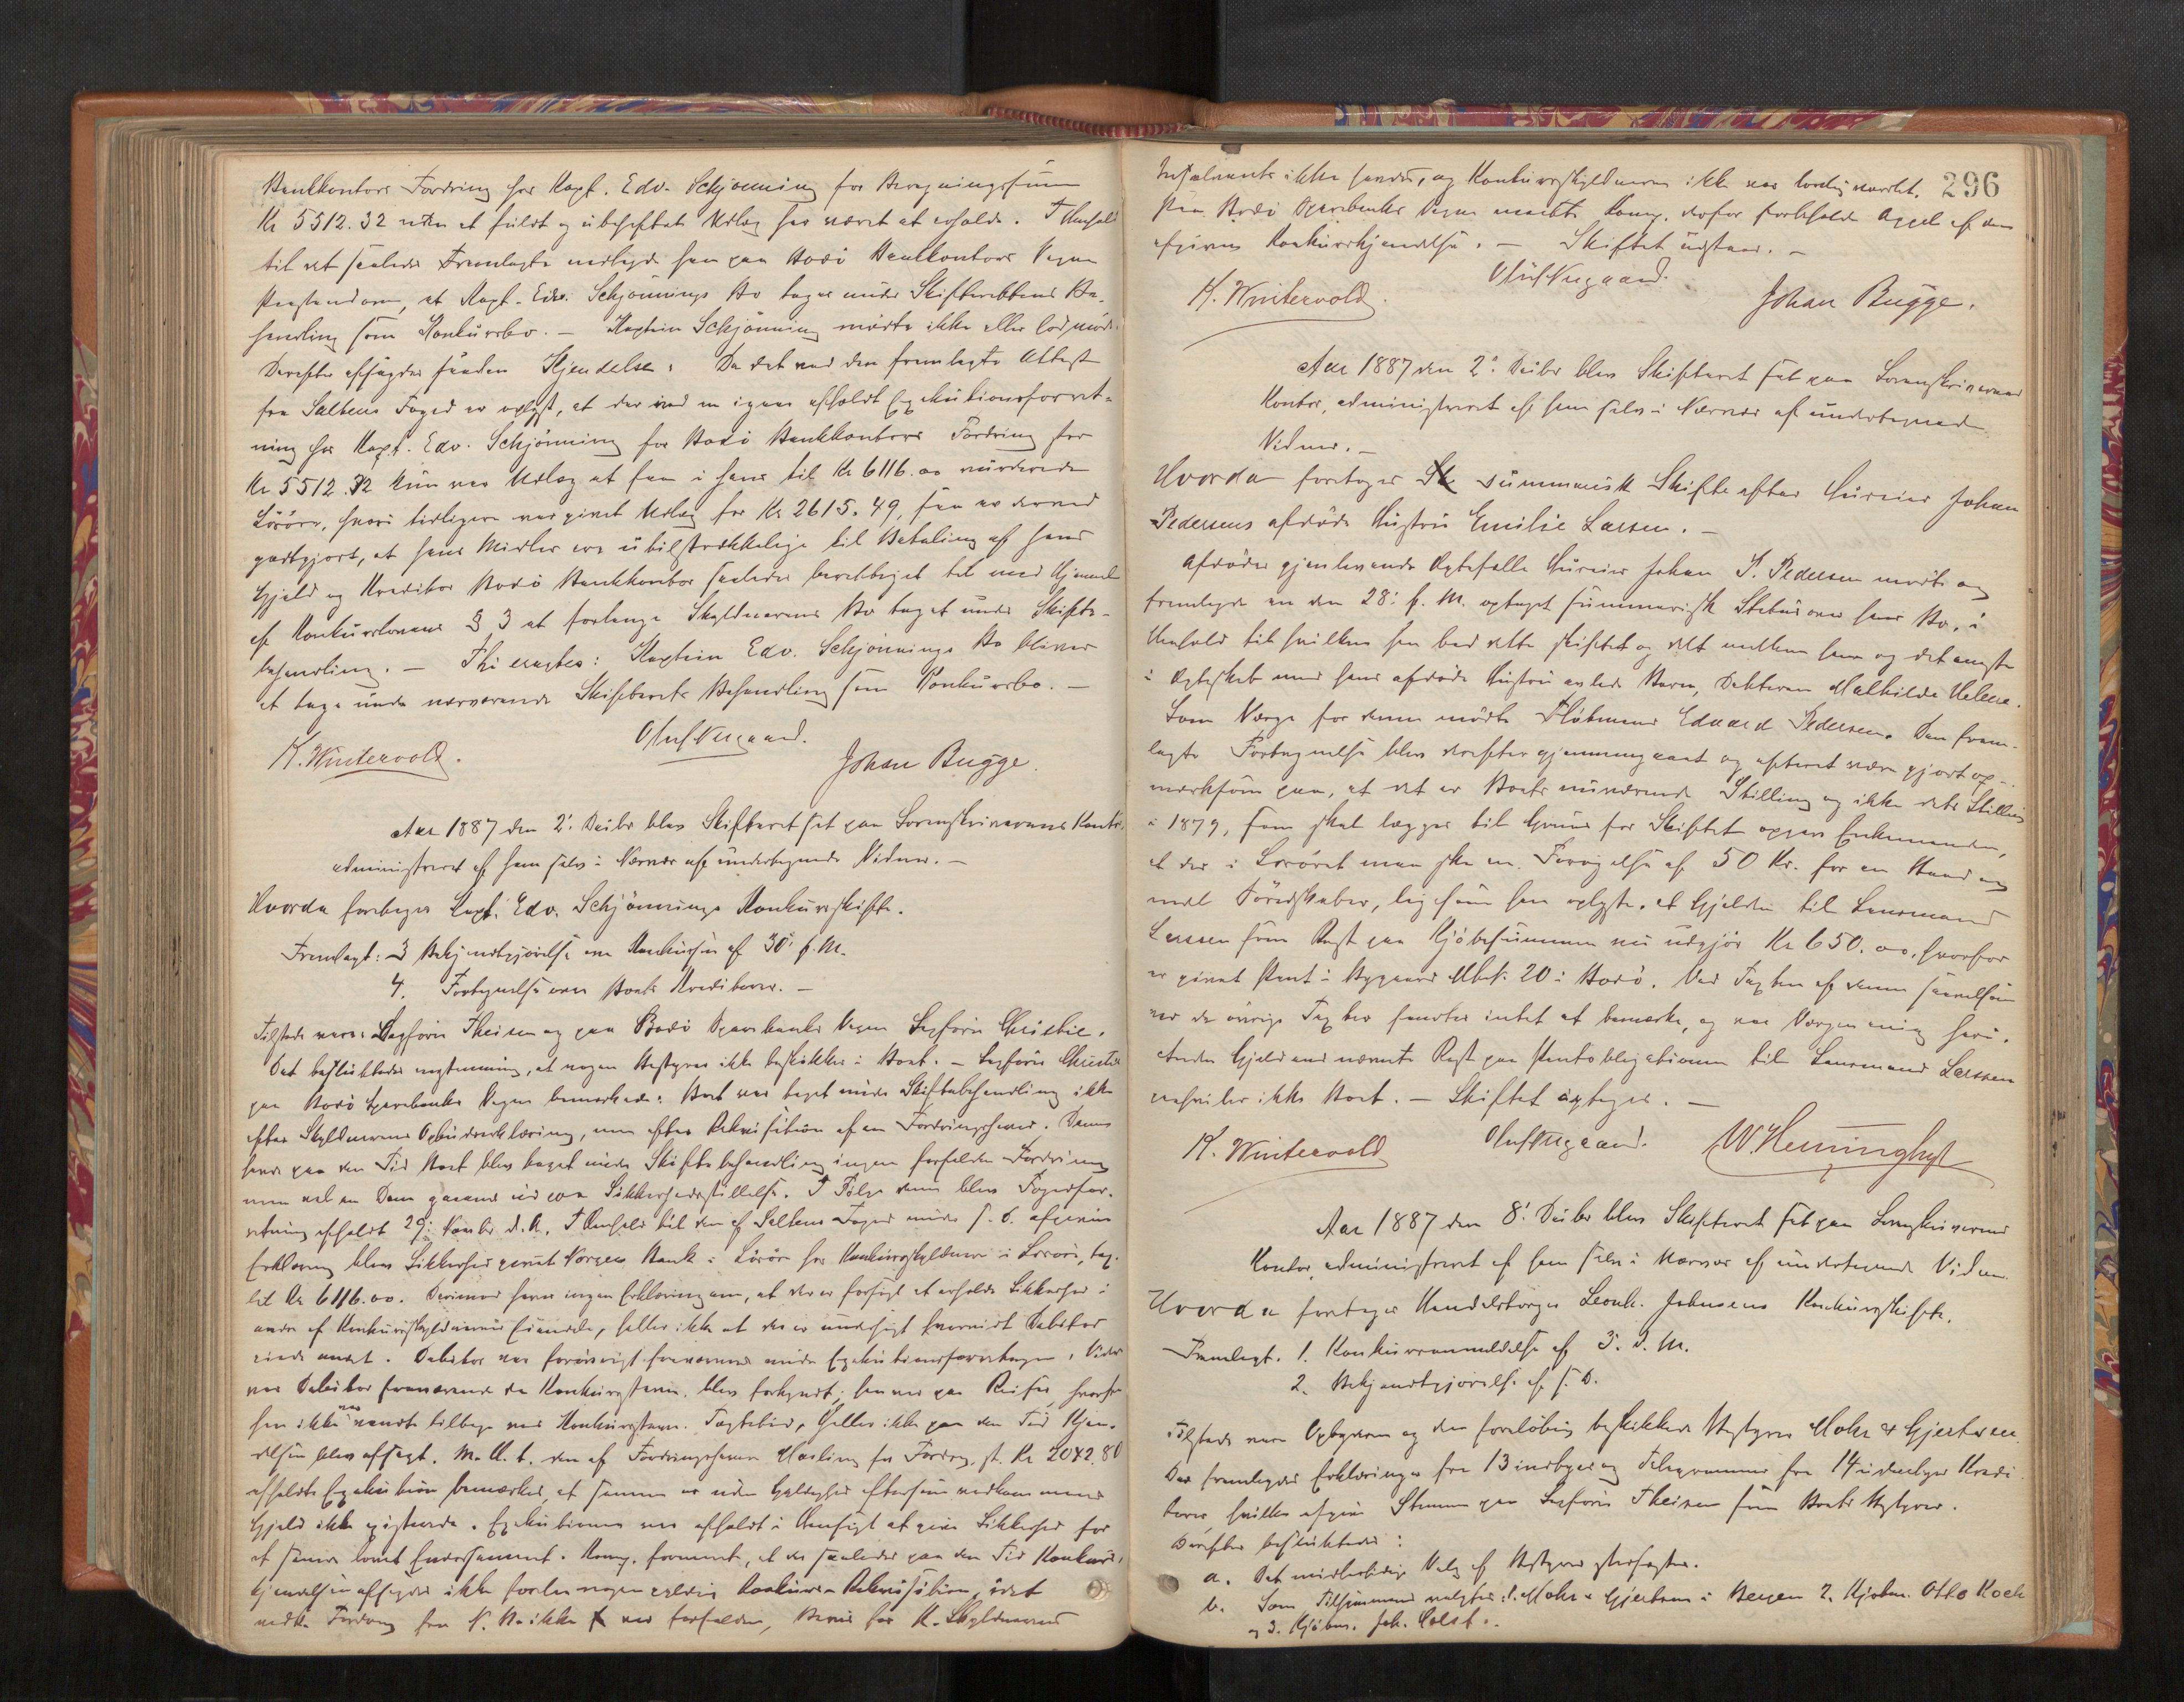 Bankkontors Fordring hos Kapt. Edv. Schjønning for Beregningssum
Kr 5512.32 uden at fuldt og ubeheftet Udlæg har været at erholde. I Henhold
til det saaledes Fremlagte nedlagde han paa Bodø Bankkontors Vegne
Paastand om, at Kapt. Edv. Schjønnings Bo tages under Skifterettens Be-
handling som Konkursbo. – Kaptein Schjønning mødte ikke eller lod møde.
Derefter afsagdes saadan Kjendelse: Da det ved den fremlagte Attest
fra Saltens Foged er oplyst, at der ved en igaar afholdt Exekutionsforret-
ning hos Kapt. Edv. Schjønning for Bodø Bankkontors Fordring stor
Kr 5512.32 kun var Udlæg at faa i hans til Kr 6116.00 vurderede
Løsøre, hvori tidligere var givet Udlæg for Kr 2615.49, saa er derved
godtgjort, at hans Midler ere utilstrækkelige til Betaling af hans
Gjæld og Kreditor Bodø Bankkontor saaledes berettiget til med Hjemmel
af Konkurslovens § 3 at forlange Skyldnerens Bo taget under Skifte-
behandling. – Thi eragtes: Kaptein Edv. Schjønnings Bo bliver
at tage under nærværende Skifterets Behandling som Konkursbo. –
K. Wintervold. Oluf Nergaard. Johan Bugge.
Aar 1887 den 2' Decbr blev Skifteret sat paa Sorenskriverens Kontor,
administreret af ham selv i Nærvær af undertegnede Vidner. –
Hvorda foretages Kapt. Edv. Schjønnings Konkursskifte.
Fremlagt: 3 Bekjendtgjørelse om Konkursen af 30' f. M.
4. Fortegnelse over Boets Kreditorer. –
Tilstede vare: Sagfører Theisen og paa Bodø Sparebanks Vegne Sagfører Christie.
Det besluttedes enstemmig, at nogen Bestyrer ikke beskikkes i Boet. – Sagfører Christie
paa Bodø Sparebanks Vegne bemærkede: Boet var taget under Skiftebehandling ikke
efter Skyldnerens Opbudserklæring, men efter Rekvisition af en Fordringshaver. Denne
havde paa den Tid Boet blev taget under Skiftebehandling ingen forfalden Fordring
men vel en Dom gaaende ud paa Sikkerhedsstillelse. I Følge denne blev Fogedfor-
retning afholdt 29' Novbr d. A. I Henhold til den af Saltens Foged under s. D. afgivne
Erklæring blev Sikkerhed givet Norges Bank i Løsøre hos Konkursskyldneren i Løsøre, tax.
til Kr 6116.00. Derimod haves ingen Erklæring om, at der er forsøgt at erholde Sikkerhed i
andre af Konkursskyldnerens Eiendele, heller ikke at der er undersøgt hvorvidt Debitor
eiede andet. Debitor var forøvrigt fraværende under Exekutionsforretningen. Videre
var Debitor fraværende da Konkursstævn. blev forkyndt; han var paa Reise, hvorfra
han ikke var vendt tilbage ved Konkursstævn. Tægtetid, heller ikke paa den Tid Kjen-
delsen blev afsagt. M. H. t. den af Fordringshaver Hasling for Fordrg. st. Kr 2042.80
afholdte Exekution bemærkes, at samme er uden Gyldighed eftersom vedkommende
Gjæld ikke existerede. Exekutionen var afholdt i Hensigt at give Sikkerhed for
et senere lovet Endossement. Komp. formente, at der saaledes paa den Tid Konkurs-
kjendelsen afsagdes ikke forelaa nogen gyldig Konkurs-Rekvisition, idet
nedlte Fordring fra N. B. ikke var forfalden, Bevis for K. Skyldnerens
296
Insolvents ikke havdes, og Konkursskyldneren ikke var lovlig varslet.
Paa Bodø Sparebanks Vegne maatte Komp. derfor forbeholde Appel af den
afgivne Konkurskjendelse. – Skiftet udstaar. –
K. Wintervold. Oluf Nergaard. Johan Bugge.
Aar 1887 den 2' Decbr blev Skifteret sat paa Sorenskriverens
Kontor, administreret af ham selv i Nærvær af undertegnede
Vidner. –
Hvorda foretages summarisk Skifte efter Gureier Johan
Pedersens afdøde Hustru Emilie Larsen. –
Afdødes gjenlevende Ægtefælle Gureier Johan P. Pedersen mødte og
fremlagde en den 28' f. M. optaget summarisk Status over hans Bo, i
Henhold til hvilken han bad dette skiftet og delt mellem ham og det eneste
i Ægteskab med hans afdøde Hustru avlede Barn, Datteren Mathilde Helene.
Som Værge for denne mødte Fløtmand Edvard Pedersen. Den frem-
lagte Fortegnelse blev derefter gjennemgaaet og efteret være gjort op-
mærksom paa, at det er Boets nuværende Stilling og ikke dets Stilling
i 1879, som skal lægges til Grund for Skiftet opgav Enkemanden,
at der i Løsøret maa ske en Forøgelse af 50 Kr. for en Baad og
endel Søredskaber, ligesom han oplyste, at Gjælden til Lensmand
Larssen som Rest paa Kjøbesummen nu udgjør Kr 650.00, hvorfor
er givet Pant i Bygaard Mtr. 20 i Bodø. Ved Taxten af denne saavelsom
ved de øvrige Taxter havdes intet at bemærke, og var Værgen enig heri.
Anden Gjæld end nævnte Rest paa Pantobligationen til Lensmand Larssen
paahviler ikke Boet. – Skiftet optages. –
K. Wintervold Oluf Nergaard. W. Henninghyt
Aar 1887 den 8' Decbr blev Skifteret sat paa Sorenskriverens
Kontor, administreret af ham selv i Nærvær af undertegnede Vidner.
Hvorda foretages Handelsborger Leonh. Johnsens Konkursskifte.
Fremlagt. 1. Konkursanmeldelse af 3. d. M.
2. Bekjendtgjørelse af s. D.
Tilstede vare Opbyderen og den foreløbig beskikkede Bestyrer Mohr & Gjertsen.
Der fremlagdes Erklæringer fra 13 indbyes og Telegrammer fra 14 udenbyes Kredi-
torer, hvilke afgive Stemme paa Sagfører Theisen som Boets Bestyrer.
Derefter besluttedes:
a. Det midlertidige Valg af Bestyrer stadfæstes.
b. Som Tilsynsmænd valgtes: 1. Mohr & Gjertsen i Bergen 2. Kjøbm. Otto Koch
og 3. Kjøbm. Joh. Colst.